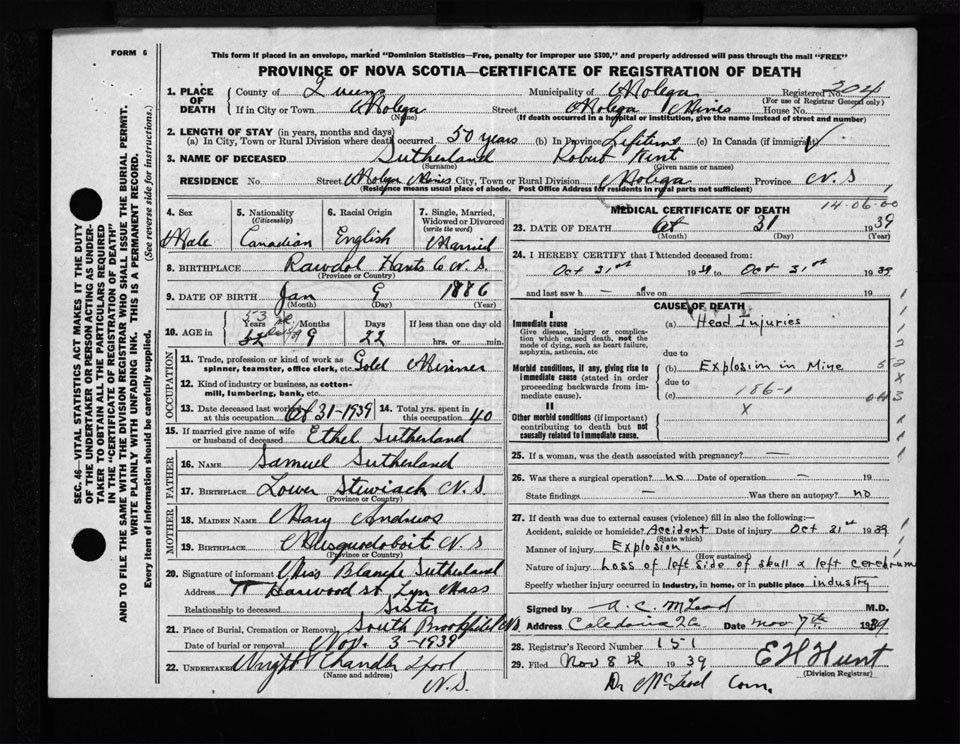 FORM 6
This form if placed in an envelope, marked "Dominion Statistics—Free, penalty for improper use $300," and properly addressed will pass through the mail "FREE"
PROVINCE OF NOVA SCOTIA—CERTIFICATE OF REGISTRATION OF DEATH
SEC. 46—VITAL STATISTICS ACT MAKES IT THE DUTY
OF THE UNDERTAKER OR PERSON ACTING AS UNDER-
TAKER TO OBTAIN ALL THE PARTICULARS REQUIRED
IN THE "CERTIFICATE OF REGISTRATION OF DEATH"
AND TO FILE THE SAME WITH THE DIVISION REGISTRAR WHO SHALL ISSUE THE BURIAL PERMIT.
WRITE PLAINLY WITH UNFADING INK. THIS IS A PERMANENT RECORD.
Every item of information should be carefully supplied. (See reverse side for instructions.)
1. PLACE OF DEATH County of Queens Municipality of Molega Registered No. 304
(For use of Registrar General only)
If in City or Town Molega Street Molega Mines House No.
(Name) (If death occurred in a hospital or institution, give the name instead of street and number)
2. LENGTH OF STAY (in years, months and days)
(a) In City, Town or Rural Division where death occurred 50 years (b) In Province Lifetime (c) In Canada (if immigrant)
3. NAME OF DECEASED Sutherland Robert Kent
(Surname) (Given name or names)
RESIDENCE No. Street Molega Mines City, Town or Rural Division Molega Province N.S
(Residence means usual place of abode. Post Office Address for residents in rural parts not sufficient)
4. Sex Male
5. Nationality (Citizenship) Canadian
6. Racial Origin English
7. Single, Married, Widowed or Divorced (write the word) Married
8. BIRTHPLACE Rawdol Hants Co N.S.
(Province or Country)
9. DATE OF BIRTH Jan 9 1886
(Month) (Day) (Year)
10. AGE in 53 Years 9 Months 22 Days If less than one day old
hrs. or min.
OCCUPATION
11. Trade, profession or kind of work as spinner, teamster, office clerk, etc. Gold Miner
12. Kind of industry or business, as cotton-mill, lumbering, bank, etc.
13. Date deceased last worked at this occupation Oct 31-1939 14. Total yrs. spent in this occupation 40
15. If married give name of wife or husband of deceased Ethel Sutherland
FATHER
16. NAME Samuel Sutherland
17. BIRTHPLACE Lower Stewiack N.S
(Province or Country)
MOTHER
18. MAIDEN NAME Mary Andrews
19. BIRTHPLACE Musquodoboit N S
(Province or Country)
20. Signature of informant Miss Blanche Sutherland
Address Harwood st Lyn Mass
Relationship to deceased Sister
21. Place of Burial, Cremation or Removal South Brookfield N.S.
Date of burial or removal Nov. 3-1939
22. UNDERTAKER Wright Chandler L'pool
(Name and address) N.S.
MEDICAL CERTIFICATE OF DEATH 14-06-00
23. DATE OF DEATH Oct 31 1939
(Month) (Day) (Year)
24. I HEREBY CERTIFY that I attended deceased from:
Oct 31st 1939 to Oct 31st 1939
and last saw h — alive on — 19
CAUSE OF DEATH
I
Immediate cause (a) Head Injuries
Give disease, injury or complication which caused death, not the mode of dying, such as heart failure, asphyxia, asthenia, etc
due to
Morbid conditions, if any, giving rise to immediate cause (stated in order proceeding backwards from immediate cause). (b) Explosion in Mine
due to 186-1
(c) X
II
Other morbid conditions (if important) contributing to death but not causally related to immediate cause.
25. If a woman, was the death associated with pregnancy? —
26. Was there a surgical operation? no Date of operation —
State findings — Was there an autopsy? no
27. If death was due to external causes (violence) fill in also the following:
Accident, suicide or homicide? Accident Date of injury Oct 31st 1939
(State which)
Manner of injury Explosion
(How sustained)
Nature of injury Loss of left side of skull & left cerebrum
Specify whether injury occurred in industry, in home, or in public place industry
Signed by A. C. McLeod M.D.
Address Caledonia Date Nov 7th 1939
28. Registrar's Record Number 151
29. Filed Nov 8th 1939 E H Hunt
(Division Registrar)
Dr McLeod Corn.